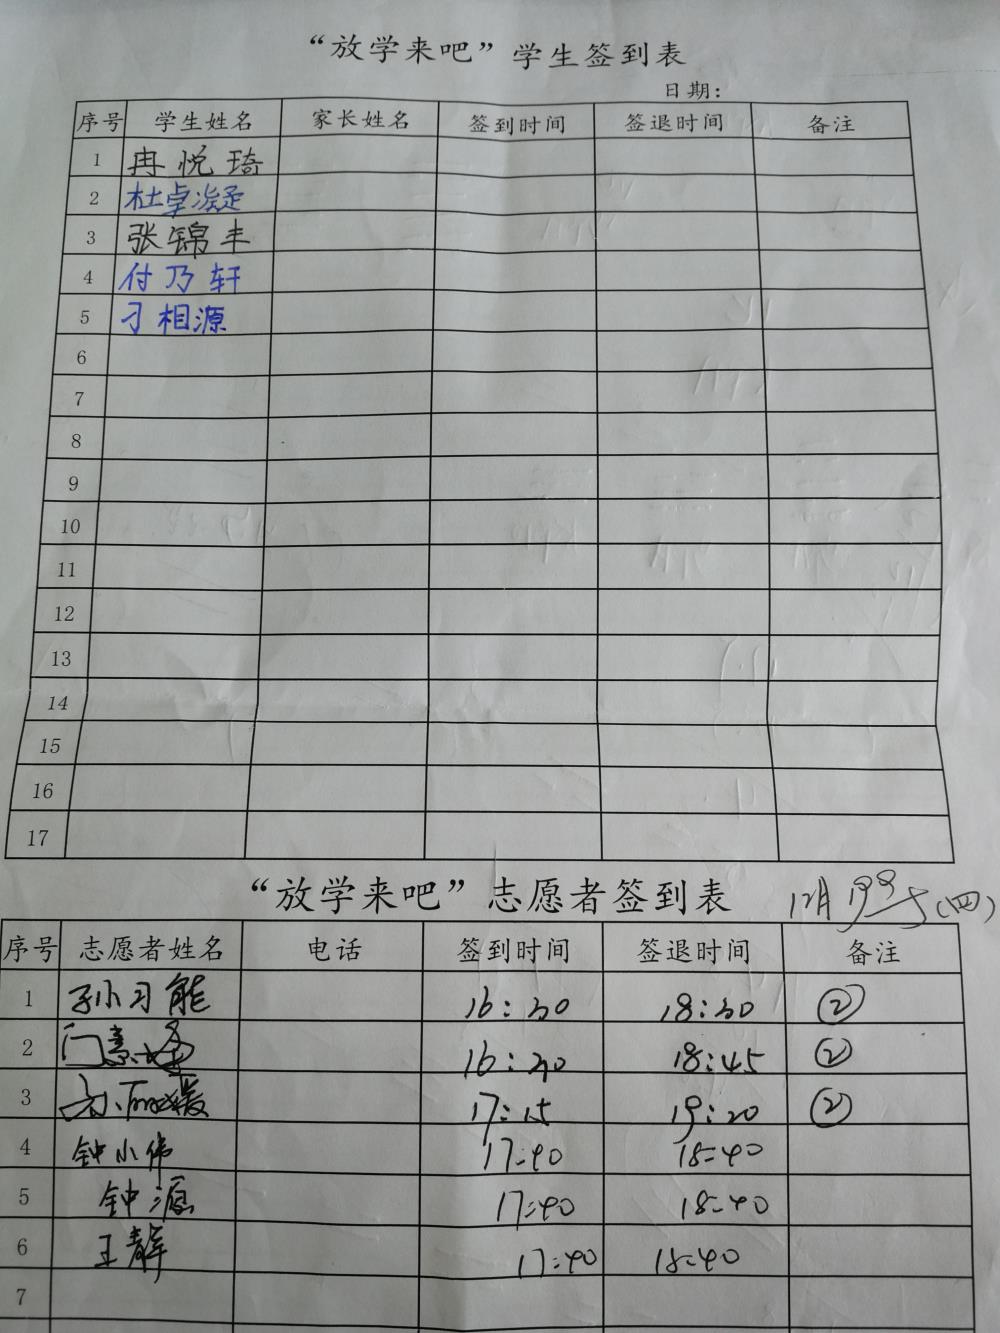 “放学来吧”学生签到表
日期：
序号 学生姓名 家长姓名 签到时间 签退时间 备注
1 冉悦琦
2 杜卓凝
3 张锦丰
4 付乃轩
5 刁相源
6
7
8
9
10
11
12
13
14
15
16
17
“放学来吧”志愿者签到表 12月 (四)
序号 志愿者姓名 电话 签到时间 签退时间 备注
1 孙小习能 16:30 18:30 ②
2 门慧 16:30 18:45 ②
3 17:15 19:20 ②
4 钟小伟 17:40 18:40
5 钟源 17:40 18:40
6 王静 17:40 18:40
7